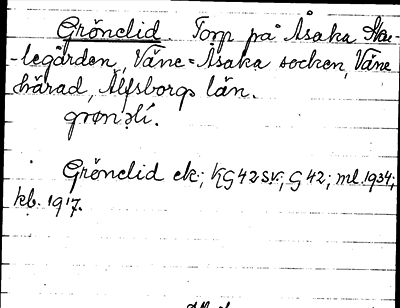 Grönelid. Torp på Åsaka Sta-
-legården, Väne-Åsaka socken, Väne
härad, Älfsborgs län.
grønəlí.
Grönelid ek; KG42sv.; G42; ml.1934;
kb. 1917.